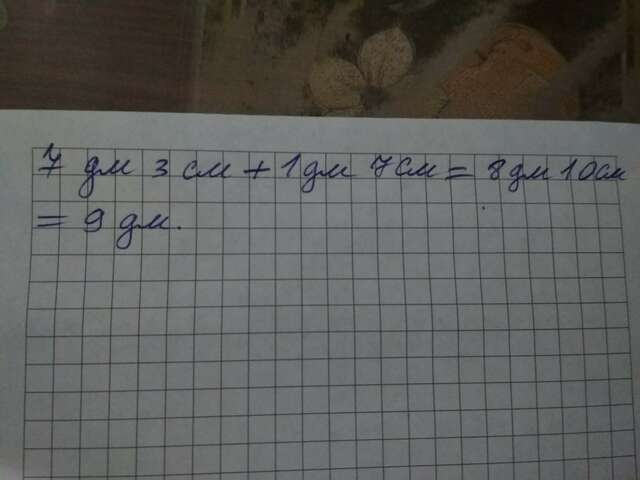 7 дм 3 см + 1 дм 7 см = 8 дм 10 см
= 9 дм.